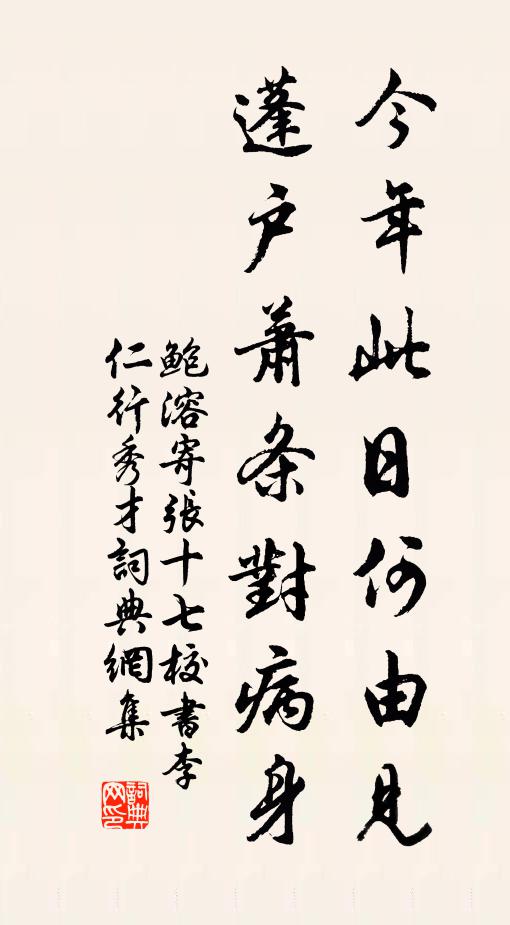 今年此日何由見
蓬户蕭条對病身
鲍溶寄張十七校書李
仁行秀才詞典網集
詞典网印